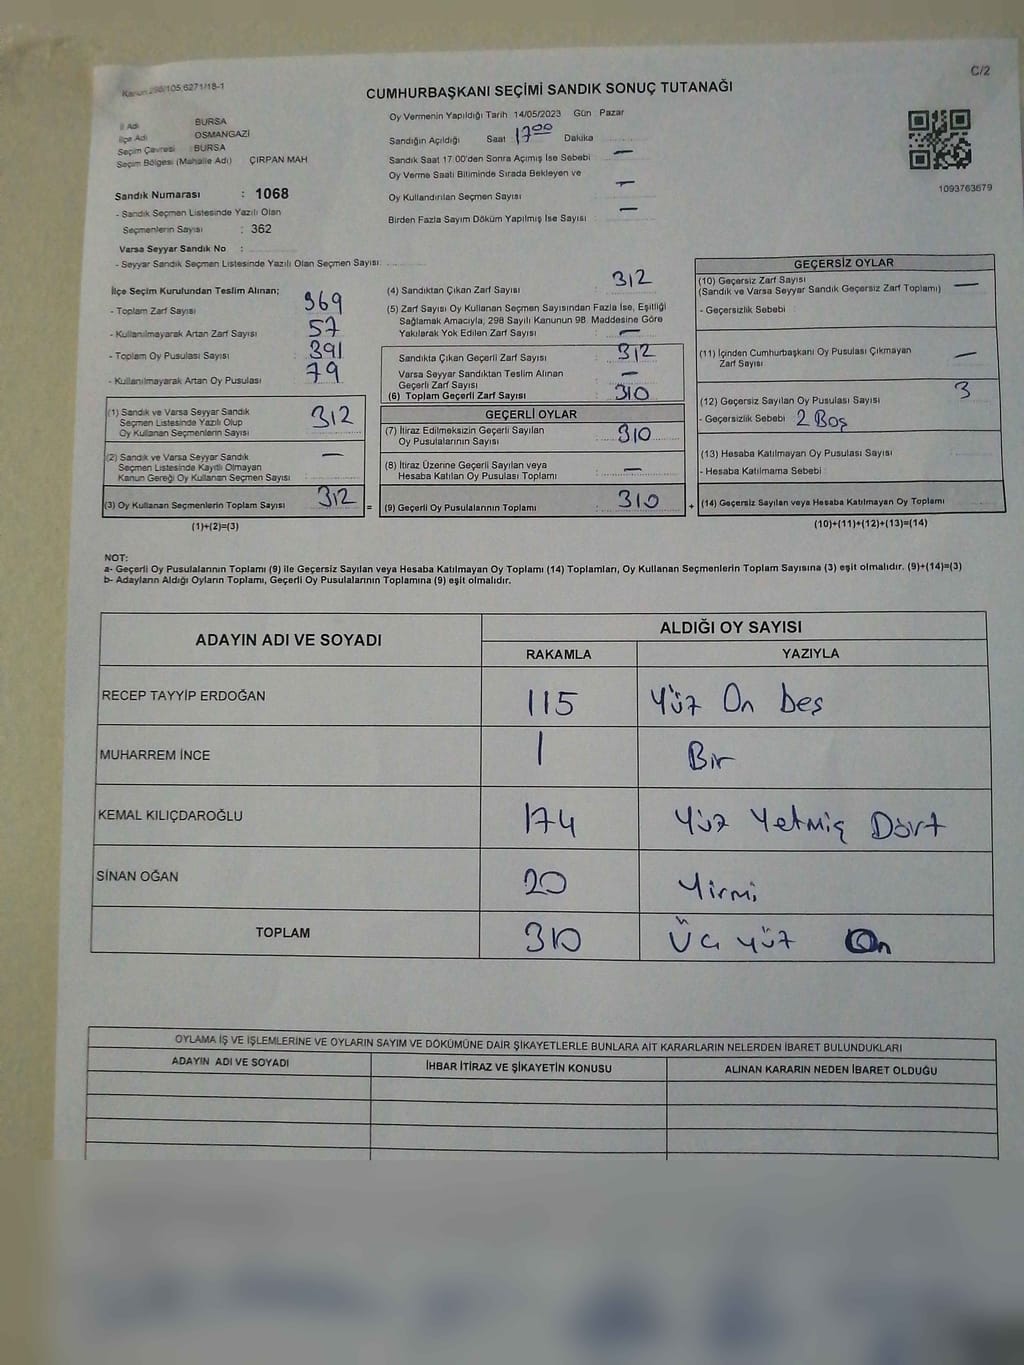 Kanun 298/105,6271/18-1
C/2
CUMHURBAŞKANI SEÇİMİ SANDIK SONUÇ TUTANAĞI
İl Adı BURSA
İlçe Adı OSMANGAZİ
Seçim Çevresi : BURSA
Seçim Bölgesi (Mahalle Adı) ÇIRPAN MAH
Sandık Numarası : 1068
- Sandık Seçmen Listesinde Yazılı Olan
Seçmenlerin Sayısı : 362
Varsa Seyyar Sandık No :
- Seyyar Sandık Seçmen Listesinde Yazılı Olan Seçmen Sayısı:
Oy Vermenin Yapıldığı Tarih 14/05/2023 Gün Pazar
Sandığın Açıldığı Saat 17 00 Dakika
Sandık Saat 17.00'den Sonra Açımış İse Sebebi : —
Oy Verme Saati Bitiminde Sırada Bekleyen ve
Oy Kullandırılan Seçmen Sayısı : —
Birden Fazla Sayım Döküm Yapılmış İse Sayısı : —
1093763679
İlçe Seçim Kurulundan Teslim Alınan;
- Toplam Zarf Sayısı : 369
- Kullanılmayarak Artan Zarf Sayısı : 57
- Toplam Oy Pusulası Sayısı : 391
- Kullanılmayarak Artan Oy Pusulası : 79
(1) Sandık ve Varsa Seyyar Sandık
Seçmen Listesinde Yazılı Olup
Oy Kullanan Seçmenlerin Sayısı : 312
(2) Sandık ve Varsa Seyyar Sandık
Seçmen Listesinde Kayıtlı Olmayan
Kanun Gereği Oy Kullanan Seçmen Sayısı : —
(3) Oy Kullanan Seçmenlerin Toplam Sayısı 312
(1)+(2)=(3)
=
(4) Sandıktan Çıkan Zarf Sayısı : 312
(5) Zarf Sayısı Oy Kullanan Seçmen Sayısından Fazla İse, Eşitliği
Sağlamak Amacıyla, 298 Sayılı Kanunun 98. Maddesine Göre
Yakılarak Yok Edilen Zarf Sayısı : —
Sandıkta Çıkan Geçerli Zarf Sayısı : 312
Varsa Seyyar Sandıktan Teslim Alınan
Geçerli Zarf Sayısı : —
(6) Toplam Geçerli Zarf Sayısı : 310
GEÇERLİ OYLAR
(7) İtiraz Edilmeksizin Geçerli Sayılan
Oy Pusulalarının Sayısı : 310
(8) İtiraz Üzerine Geçerli Sayılan veya
Hesaba Katılan Oy Pusulası Toplamı : —
(9) Geçerli Oy Pusulalarının Toplamı : 310
+
GEÇERSİZ OYLAR
(10) Geçersiz Zarf Sayısı
(Sandık ve Varsa Seyyar Sandık Geçersiz Zarf Toplamı) —
- Geçersizlik Sebebi :
(11) İçinden Cumhurbaşkanı Oy Pusulası Çıkmayan
Zarf Sayısı —
(12) Geçersiz Sayılan Oy Pusulası Sayısı 3
- Geçersizlik Sebebi : 2 Boş
(13) Hesaba Katılmayan Oy Pusulası Sayısı
- Hesaba Katılmama Sebebi :
(14) Geçersiz Sayılan veya Hesaba Katılmayan Oy Toplamı
(10)+(11)+(12)+(13)=(14)
NOT:
a- Geçerli Oy Pusulalarının Toplamı (9) ile Geçersiz Sayılan veya Hesaba Katılmayan Oy Toplamı (14) Toplamları, Oy Kullanan Seçmenlerin Toplam Sayısına (3) eşit olmalıdır. (9)+(14)=(3)
b- Adayların Aldığı Oyların Toplamı, Geçerli Oy Pusulalarının Toplamına (9) eşit olmalıdır.
ADAYIN ADI VE SOYADI
ALDIĞI OY SAYISI
RAKAMLA YAZIYLA
RECEP TAYYİP ERDOĞAN 115 Yüz On beş
MUHARREM İNCE 1 Bir
KEMAL KILIÇDAROĞLU 174 Yüz Yetmiş Dört
SİNAN OĞAN 20 Yirmi
TOPLAM 310 Üç yüz On
OYLAMA İŞ VE İŞLEMLERİNE VE OYLARIN SAYIM VE DÖKÜMÜNE DAİR ŞİKAYETLERLE BUNLARA AİT KARARLARIN NELERDEN İBARET BULUNDUKLARI
ADAYIN ADI VE SOYADI İHBAR İTİRAZ VE ŞİKAYETİN KONUSU ALINAN KARARIN NEDEN İBARET OLDUĞU